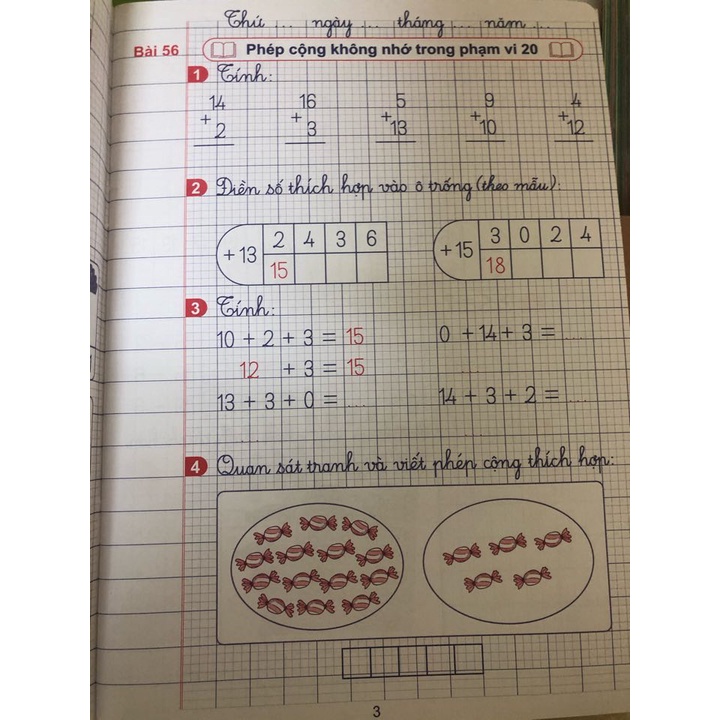 Thứ ... ngày ... tháng ... năm ...
Bài 56 Phép cộng không nhớ trong phạm vi 20
1 Tính:
14 16 5 9 4
+ + + + +
2 3 13 10 12
2 Điền số thích hợp vào ô trống (theo mẫu):
+13 2 4 3 6
15
+15 3 0 2 4
18
3 Tính:
10 + 2 + 3 = 15 0 + 14 + 3 = ....
12 + 3 = 15 ....
13 + 3 + 0 = .... 14 + 3 + 2 = ....
.... ....
4 Quan sát tranh và viết phép cộng thích hợp:
3